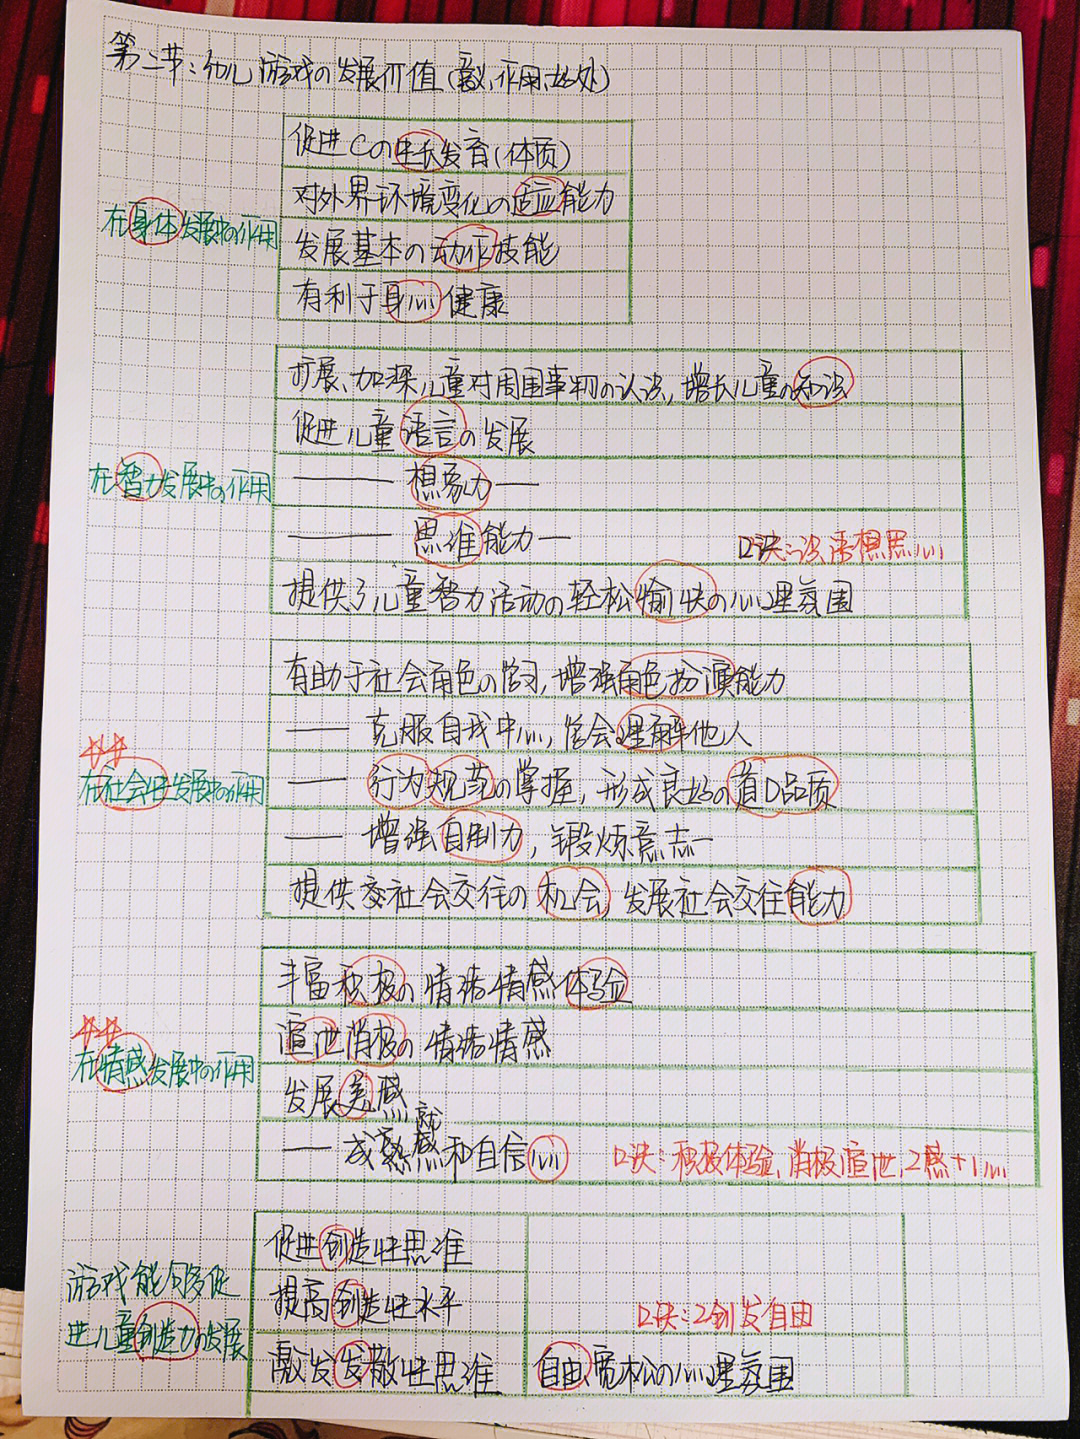 第二节:幼儿游戏の发展价值(意义、作用、好处)
在身体发展中の作用
促进Cの生长发育(体质)
对外界环境变化の适应能力
发展基本の动作技能
有利于身心健康
在智力发展中の作用
扩展、加深儿童对周围事物の认识,增长儿童の知识
促进儿童语言の发展
—— 想象力 —
—— 思维能力 —
口诀:识语想思心
提供了儿童智力活动の轻松愉快の心理氛围
在社会性发展中の作用
有助于社会角色の学习,增强角色扮演能力
—— 克服自我中心,学会理解他人
—— 行为规范の掌握,形成良好の道D品质
—— 增强自制力,锻炼意志—
提供社会交往の机会,发展社会交往能力
在情感发展中の作用
丰富积极の情绪情感体验
宣泄消极の情绪情感
发展美感
—— 成就感和自信心
口诀:积极体验,消极宣泄,2感+1心
游戏能够促
进儿童创造力の发展
促进创造性思维
提高创造性水平
口诀:2创发自由
激发发散性思维
自由、宽松の心理氛围